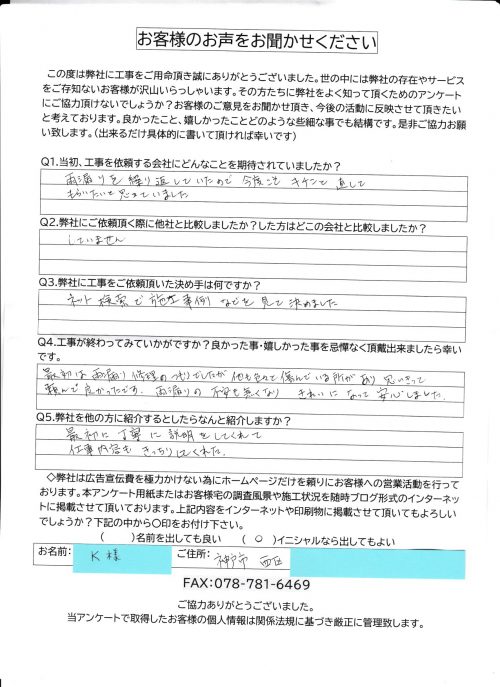 お客様のお声をお聞かせください
この度は弊社に工事をご用命頂き誠にありがとうございました。世の中には弊社の存在やサービス
をご存知ないお客様が沢山いらっしゃいます。その方たちに弊社をよく知って頂くためのアンケート
にご協力頂けないでしょうか?お客様のご意見をお聞かせ頂き、今後の活動に反映させて頂きたい
と考えております。良かったこと、嬉しかったことどのような些細な事でも結構です。是非ご協力お願
い致します。（出来るだけ具体的に書いて頂ければ幸いです）
Q1.当初、工事を依頼する会社にどんなことを期待されていましたか？
雨漏りを繰り返していたので今度こそキチンと直して
もらいたいと思っていました
Q2.弊社にご依頼頂く際に他社と比較しましたか？した方はどこの会社と比較しましたか？
していません
Q3.弊社に工事をご依頼頂いた決め手は何ですか？
ネット検索で施工事例などを見て決めました
Q4.工事が終わってみていかがですか？良かった事・嬉しかった事を忌憚なく頂戴出来ましたら幸い
です。
最初は雨漏り修理のつもりでしたが他も色々と傷んでいる所があり思いきって
頼んで良かったです。雨漏りの不安も無くなりきれいになって安心しました。
Q5.弊社を他の方に紹介するとしたらなんと紹介しますか？
最初に丁寧に説明をしてくれて
仕事内容もきっちりしてくれた。
◇弊社は広告宣伝費を極力かけない為にホームページだけを頼りにお客様への営業活動を行って
おります。本アンケート用紙またはお客様宅の調査風景や施工状況を随時ブログ形式のインターネッ
トに掲載させて頂いております。上記内容をインターネットや印刷物に掲載させて頂いてもよろしい
でしょうか？下記の中から〇印をお付け下さい。
（　　）名前を出しても良い　（　○　）イニシャルなら出してもよい
お名前： K 様　ご住所： 神戸市 西区
FAX:078-781-6469
ご協力ありがとうございました。
当アンケートで取得したお客様の個人情報は関係法規に基づき厳正に管理致します。